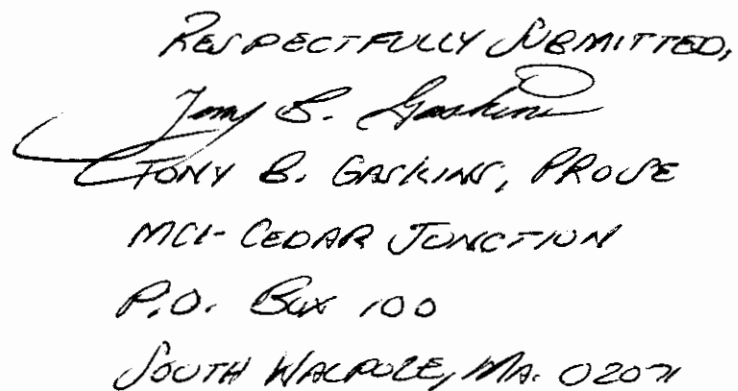 RESPECTFULLY SUBMITTED,
Tony B. Gaskins
TONY B. GASKINS, PRO SE
MCI-CEDAR JUNCTION
P.O. BOX 100
SOUTH WALPOLE, MA. 02071